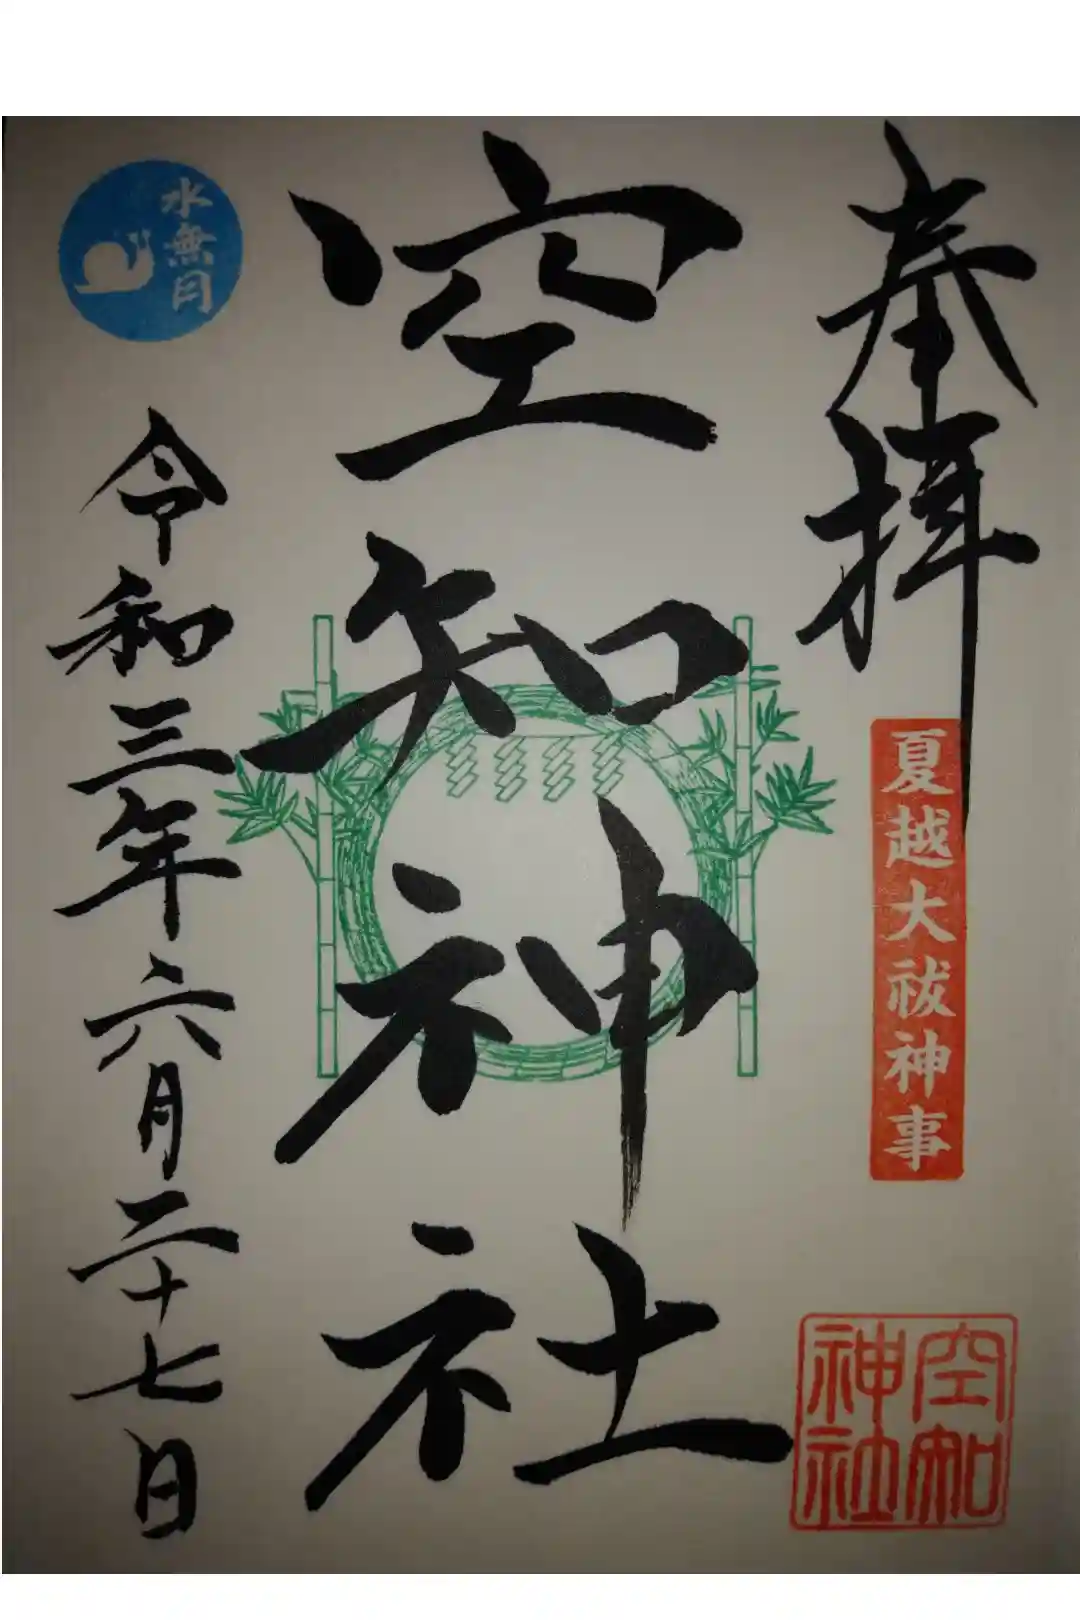 奉拝
夏越大祓神事
空知神社
空知神社
水無月
令和三年六月二十七日